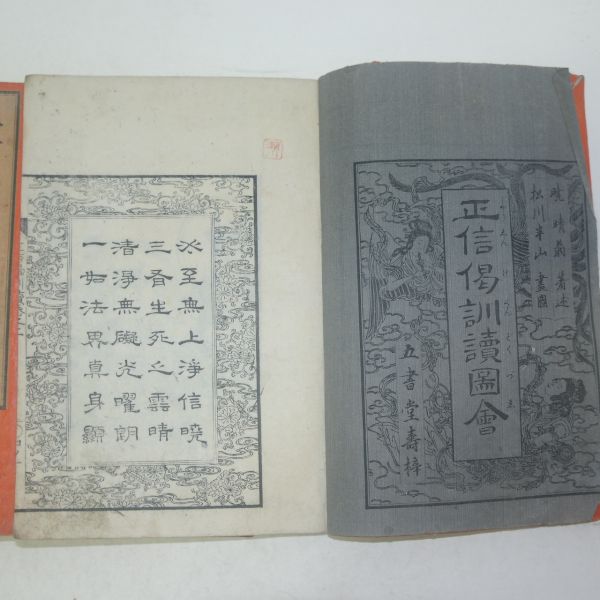 曉晴翁著述
松川半山畫圖
正信偈訓讀圖會
五書堂壽梓
必至無上淨信曉
三有生死之雲晴
清淨無礙光曜朗
一如法界真身顯